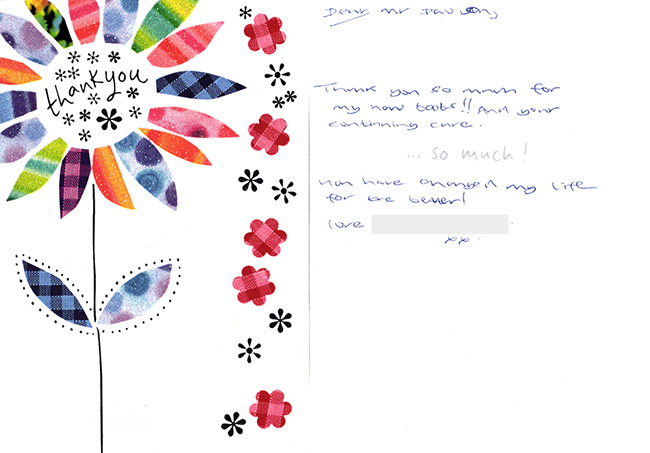 thankyou
Dear Mr
Thank you so much for
my new boobs!! And your
continuing care.
... so much!
You have changed my life
for the better!
love
xx.